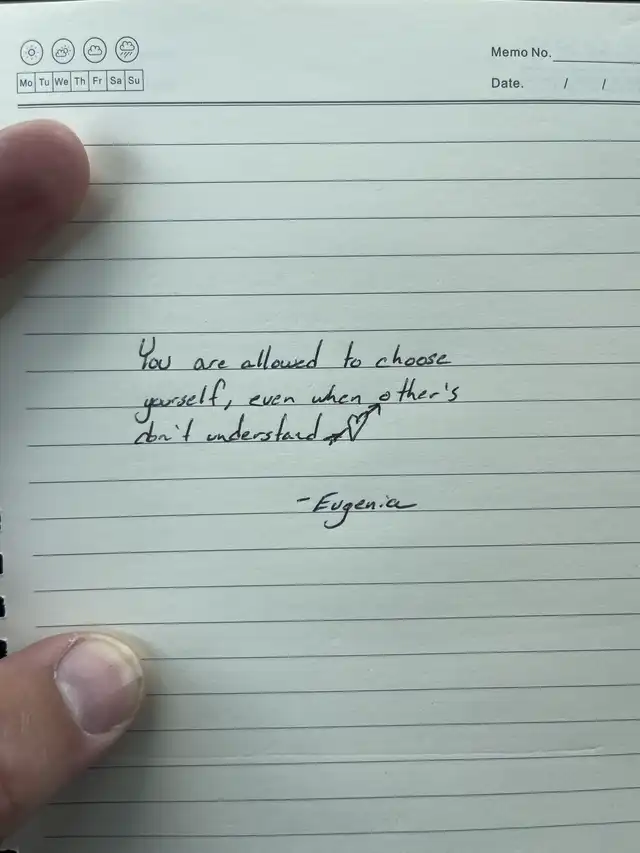 Memo No.
Mo Tu We Th Fr Sa Su
Date. / /
You are allowed to choose
yourself, even when other's
don't understand
-Eugenia